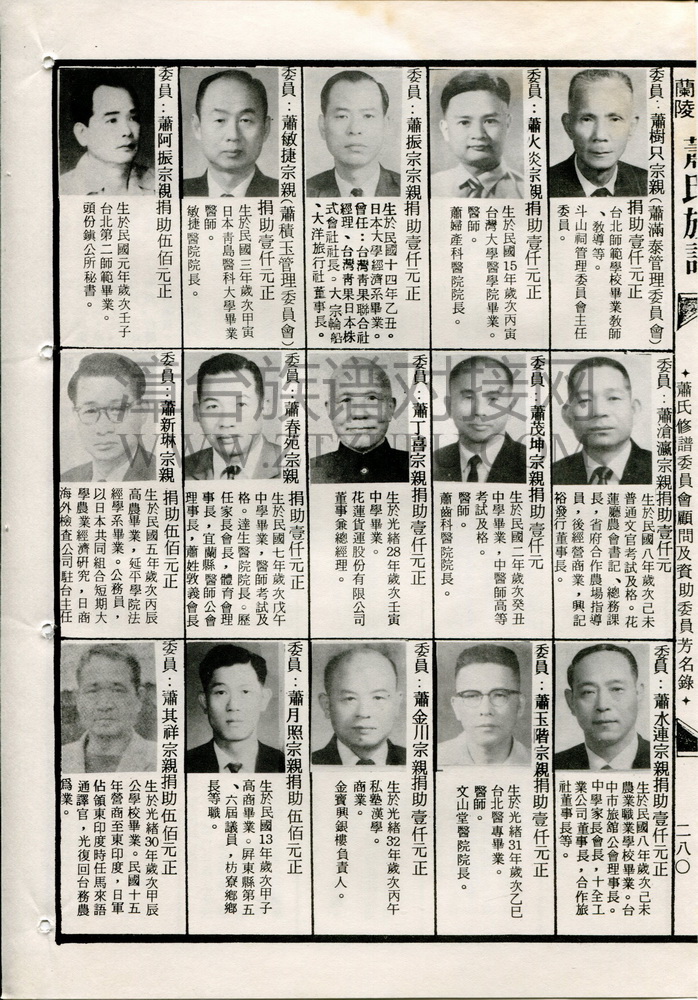 蘭陵 蕭氏族譜
✦蕭氏修譜委員會顧問及資助委員芳名錄✦
二八○
委員：蕭樹只宗親(蕭滿泰管理委員會)
捐助壹仟元正
台北師範學校畢業教師
、教導等。
斗山祠管理委員會主任
委員。
委員：蕭火炎宗親
捐助壹仟元正
生於民國15年歲次丙寅
台灣大學醫學院畢業。
醫師。
蕭婦產科醫院院長。
委員：蕭振宗宗親
捐助壹仟元正
生於民國十四年乙丑。
日本大學經濟系畢業。
曾任：台灣靑果聯合社
經理、台灣靑果日本株
式會社社長。大宗輪船
、大洋旅行社董事長。
委員：蕭敏捷宗親(蕭積玉管理委員會)
捐助壹仟元正
生於民國三年歲次甲寅
日本靑島醫科大學畢業
醫師。
敏捷醫院院長。
委員：蕭阿振宗親
捐助伍佰元正
生於民國元年歲次壬子
台北第二師範畢業。
頭份鎮公所秘書。
委員：蕭滄瀛宗親
捐助壹仟元正
生於民國八年歲次己未
普通文官考試及格。花
蓮廳農會書記、總務課
長，省府合作農場指導
員，後經營商業，興記
裕發行董事長。
委員：蕭茂坤宗親
捐助壹仟元
生於民國二年歲次癸丑
中學畢業，中醫師高等
考試及格。
醫師。
蕭齒科醫院院長。
委員：蕭丁喜宗親
捐助壹仟元正
生於光緒28年歲次壬寅
中學畢業。
花蓮貨運股份有限公司
董事兼總經理。
委員：蕭春苑宗親
捐助壹仟元正
生於民國七年歲次戊午
中學畢業，醫師考試及
格。達生醫院院長。歷
任家長會長，體育會理
事長，宜蘭縣醫師公會
理事長，蕭姓敦義會長
委員：蕭新琳宗親
捐助伍佰元正
生於民國五年歲次丙辰
高農畢業，延平學院法
經學系畢業。公務員，
以日本共同組合短期大
學農業經濟研究，日商
海外檢查公司駐台主任
委員：蕭水連宗親
捐助壹仟元正
生於民國八年歲次己未
農業職業學校畢業。台
中市旅舘公會理事長。
中學家長會長，十全工
業公司董事長，合作旅
社董事長等。
委員：蕭玉階宗親
捐助壹仟元正
生於光緒31年歲次乙巳
台北醫專畢業。
醫師。
文山堂醫院院長。
委員：蕭金川宗親
捐助壹仟元正
生於光緒32年歲次丙午
私塾漢學。
商業。
金寶興銀樓負責人。
委員：蕭月照宗親
捐助伍佰元正
生於民國13年歲次甲子
高商畢業。屏東縣第五
、六屆議員，枋寮鄉鄉
長等職。
委員：蕭其祥宗親
捐助伍佰元正
生於光緒30年歲次甲辰
公學校畢業。民國十五
年營商至東印度，日軍
佔領東印度時任馬來語
通譯官，光復回台務農
爲業。
漳台族谱对接网
WWW.ZTZUPU.COM